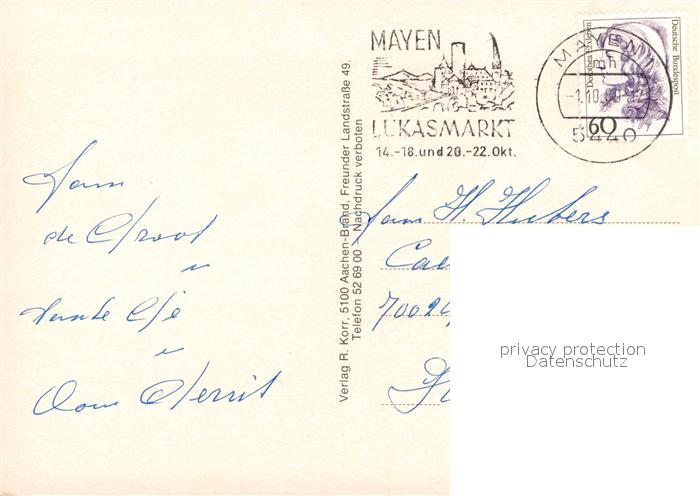 MAYEN
LUKASMARKT
14.-18. und 20.-22. Okt.
MAYEN 1
-1.10.
5440
Deutsche Bundespost
60
Verlag R. Korr, 5100 Aachen-Brand, Freunder Landstraße 49,
Telefon 52 69 00 Nachdruck verboten
Fam
de Groot
Tante
Oom Gerrit
Fam H. Hubers
privacy protection
Datenschutz